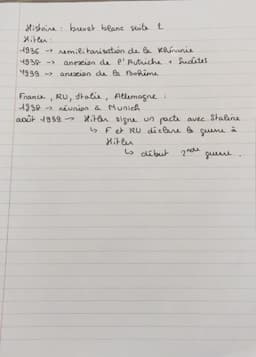 Histoire : brevet blanc suite 2
Hitler :
-1936 → remilitarisation de la Rhénanie
-1938 → anexion de l'Autriche + Sudètes
-1939 → anexion de la Bohême
France, RU, Italie, Allemagne :
-1938 → réunion à Munich
août 1939 → Hitler signe un pacte avec Staline
↳ F et RU déclare la guerre à
Hitler
↳ début 2nde guerre.